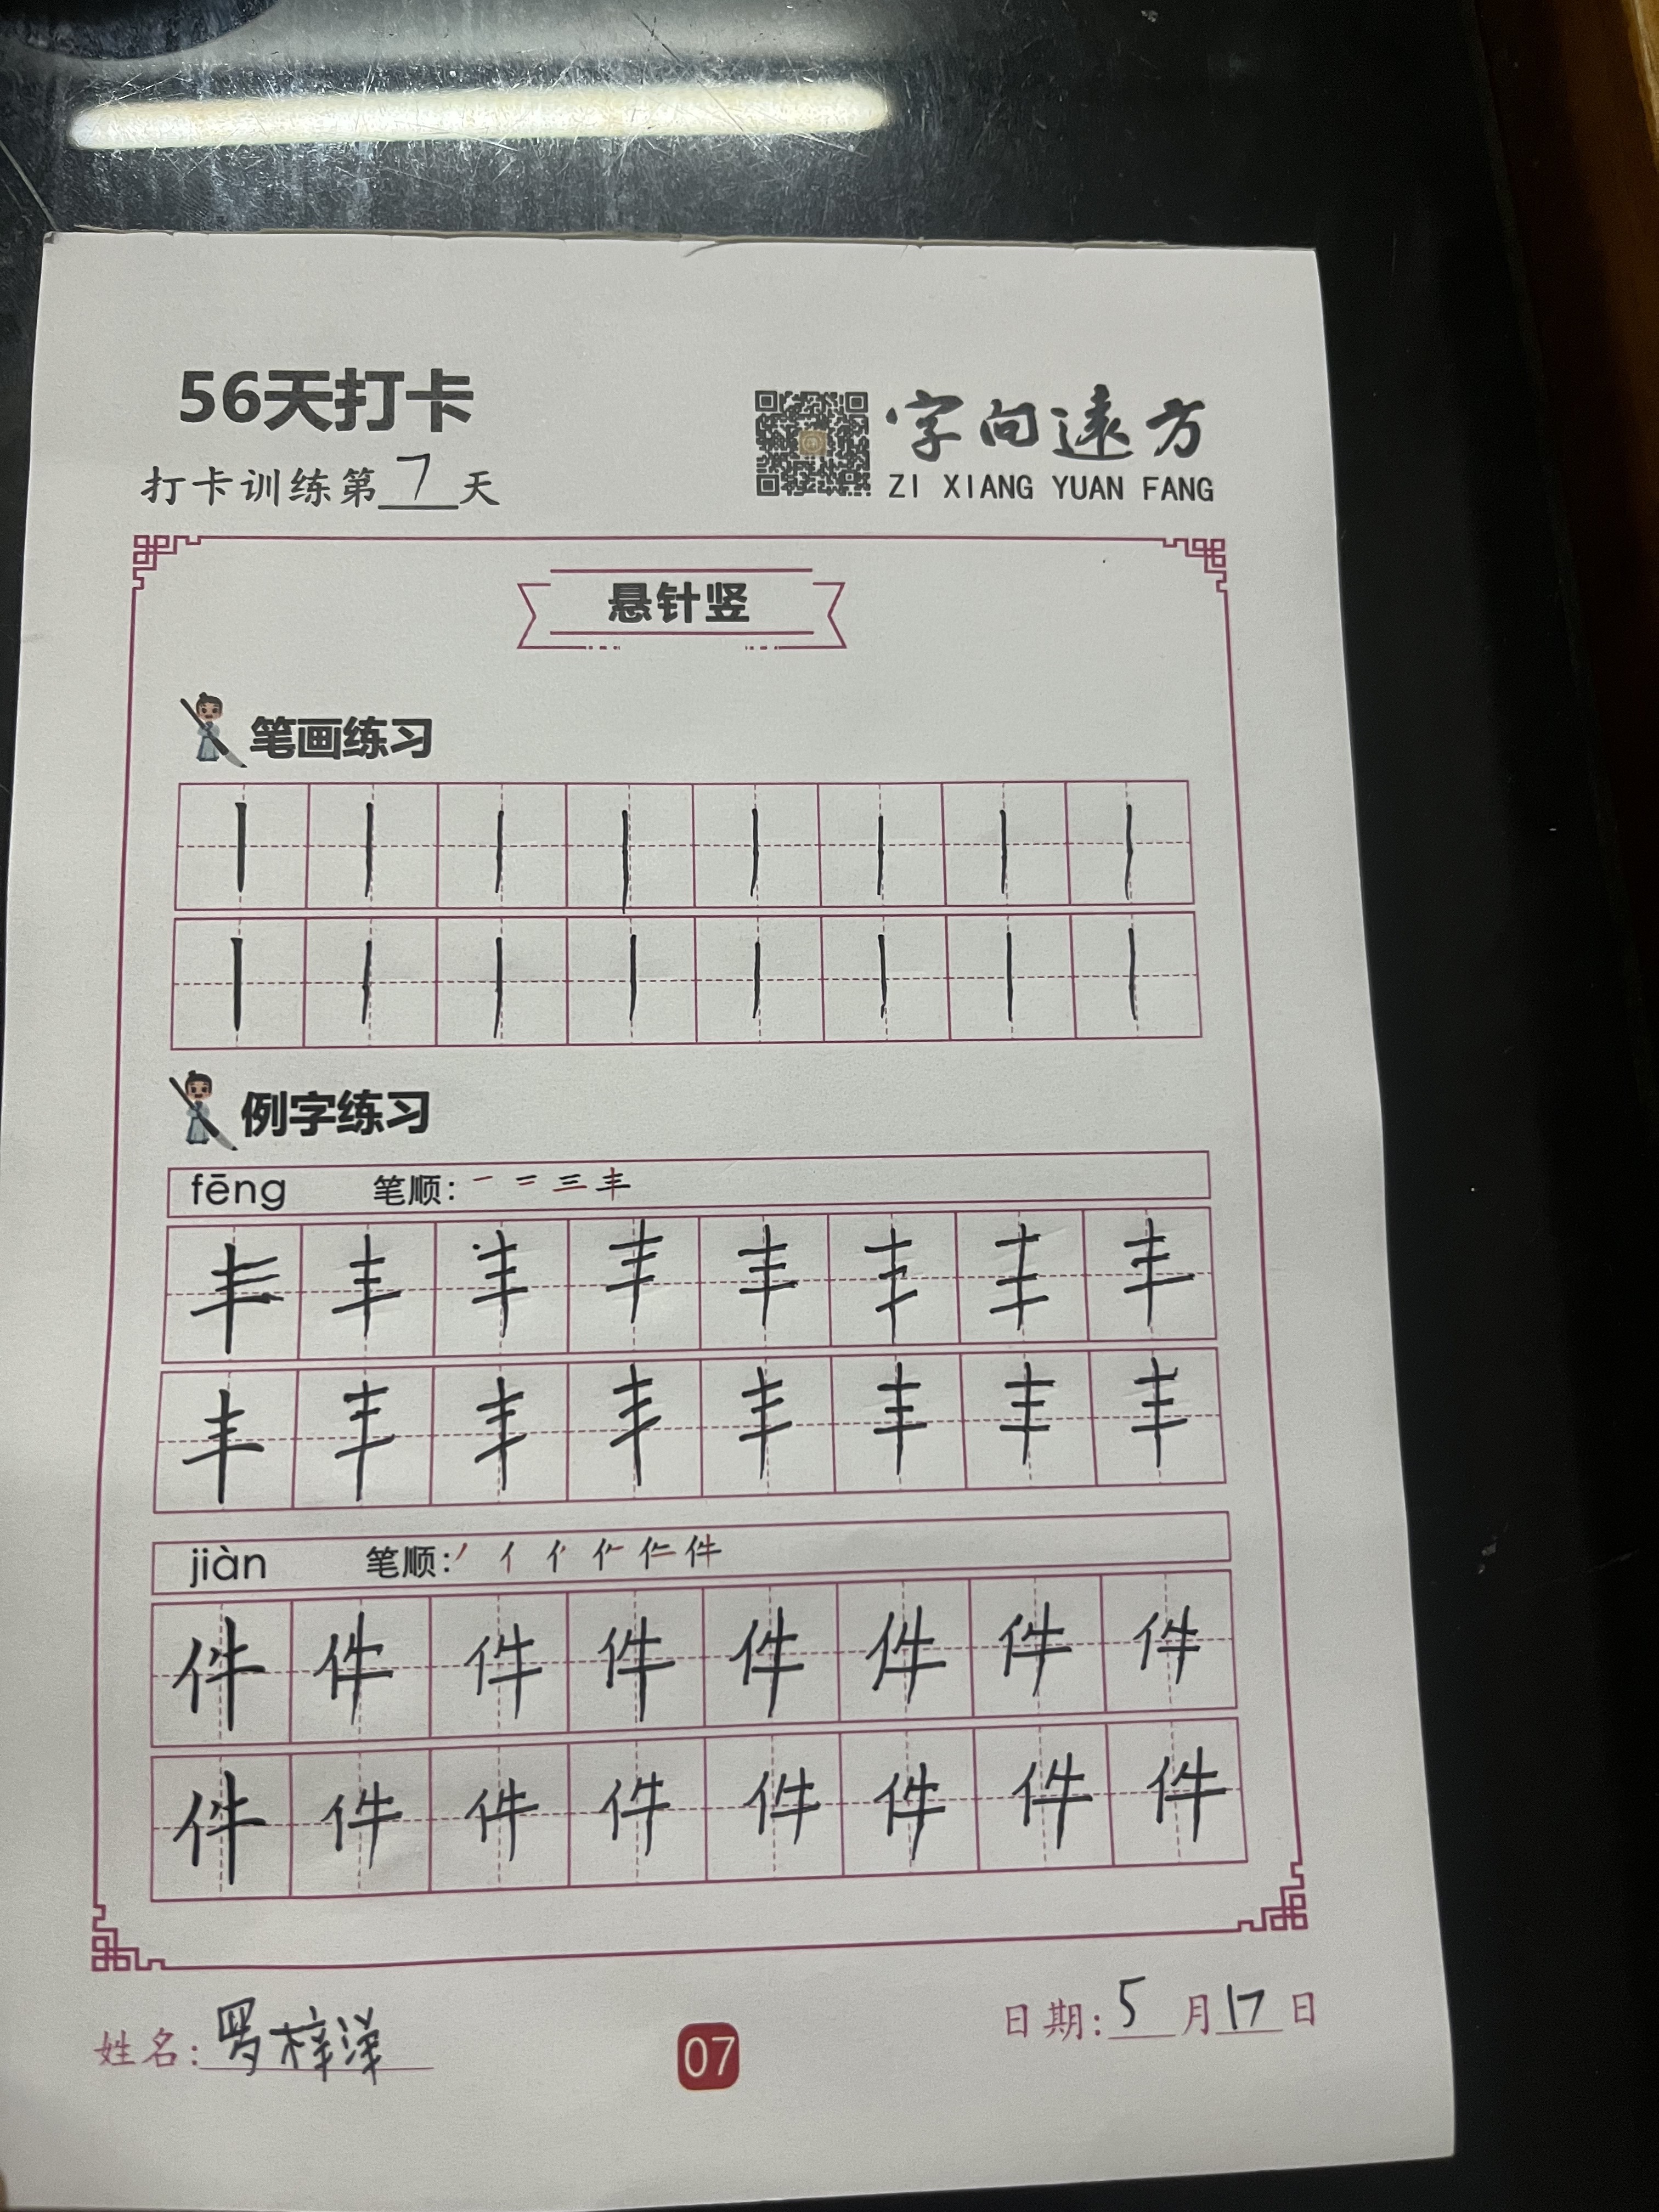 56天打卡
打卡训练第7天
字向遠方
ZI XIANG YUAN FANG
悬针竖
笔画练习
丨丨丨丨丨丨丨丨
丨丨丨丨丨丨丨丨
例字练习
fēng 笔顺: 一 二 三 丰
丰丰丰丰丰丰丰丰
丰丰丰丰丰丰丰丰
jiàn 笔顺: 丿 亻 件
件件件件件件件件
件件件件件件件件
姓名: 罗梓洋
07
日期: 5月17日